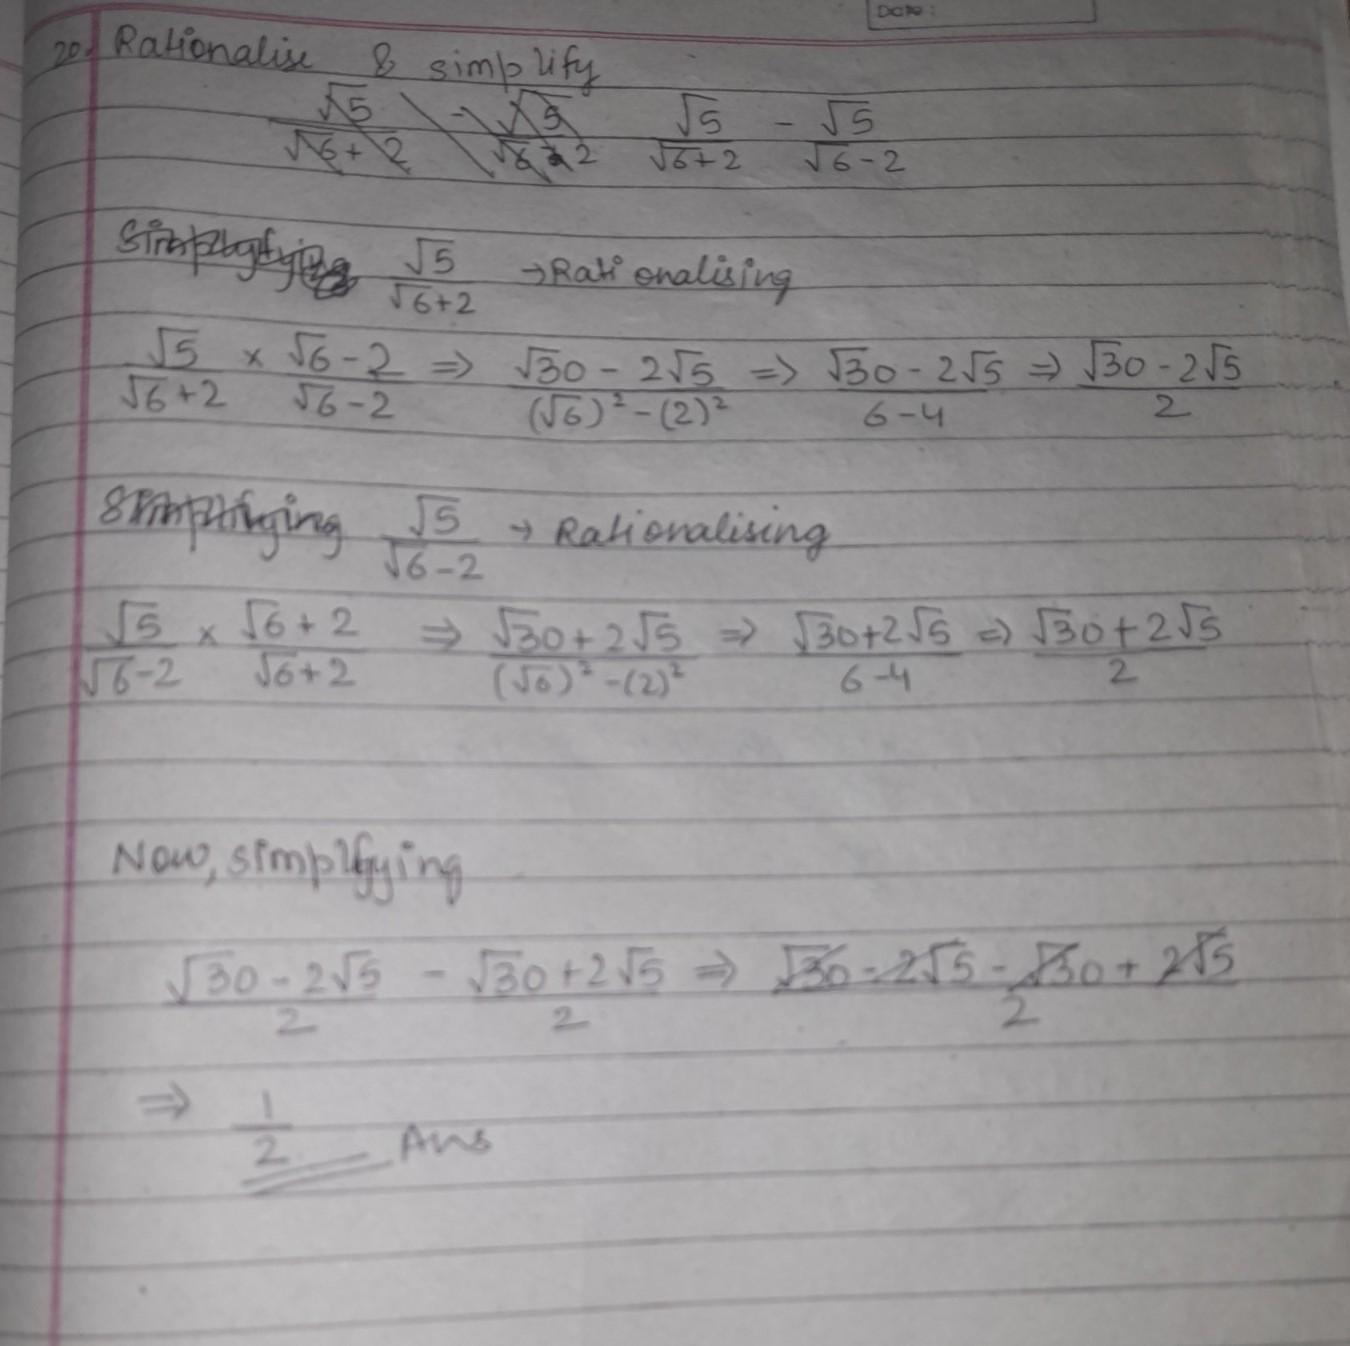 DATE:
20. Rationalise & simplify
√5/(√6+2) - √5/(√6-2)
√5/(√6+2) → Rationalising
√5/(√6+2) × (√6-2)/(√6-2) ⇒ (√30-2√5)/((√6)²-(2)²) ⇒ (√30-2√5)/(6-4) ⇒ (√30-2√5)/2
Simplifying √5/(√6-2) → Rationalising
√5/(√6-2) × (√6+2)/(√6+2) ⇒ (√30+2√5)/((√6)²-(2)²) ⇒ (√30+2√5)/(6-4) ⇒ (√30+2√5)/2
Now, simplfyying
(√30-2√5)/2 - (√30+2√5)/2 ⇒ (√30-2√5-√30+2√5)/2
⇒ 1/2 Ans